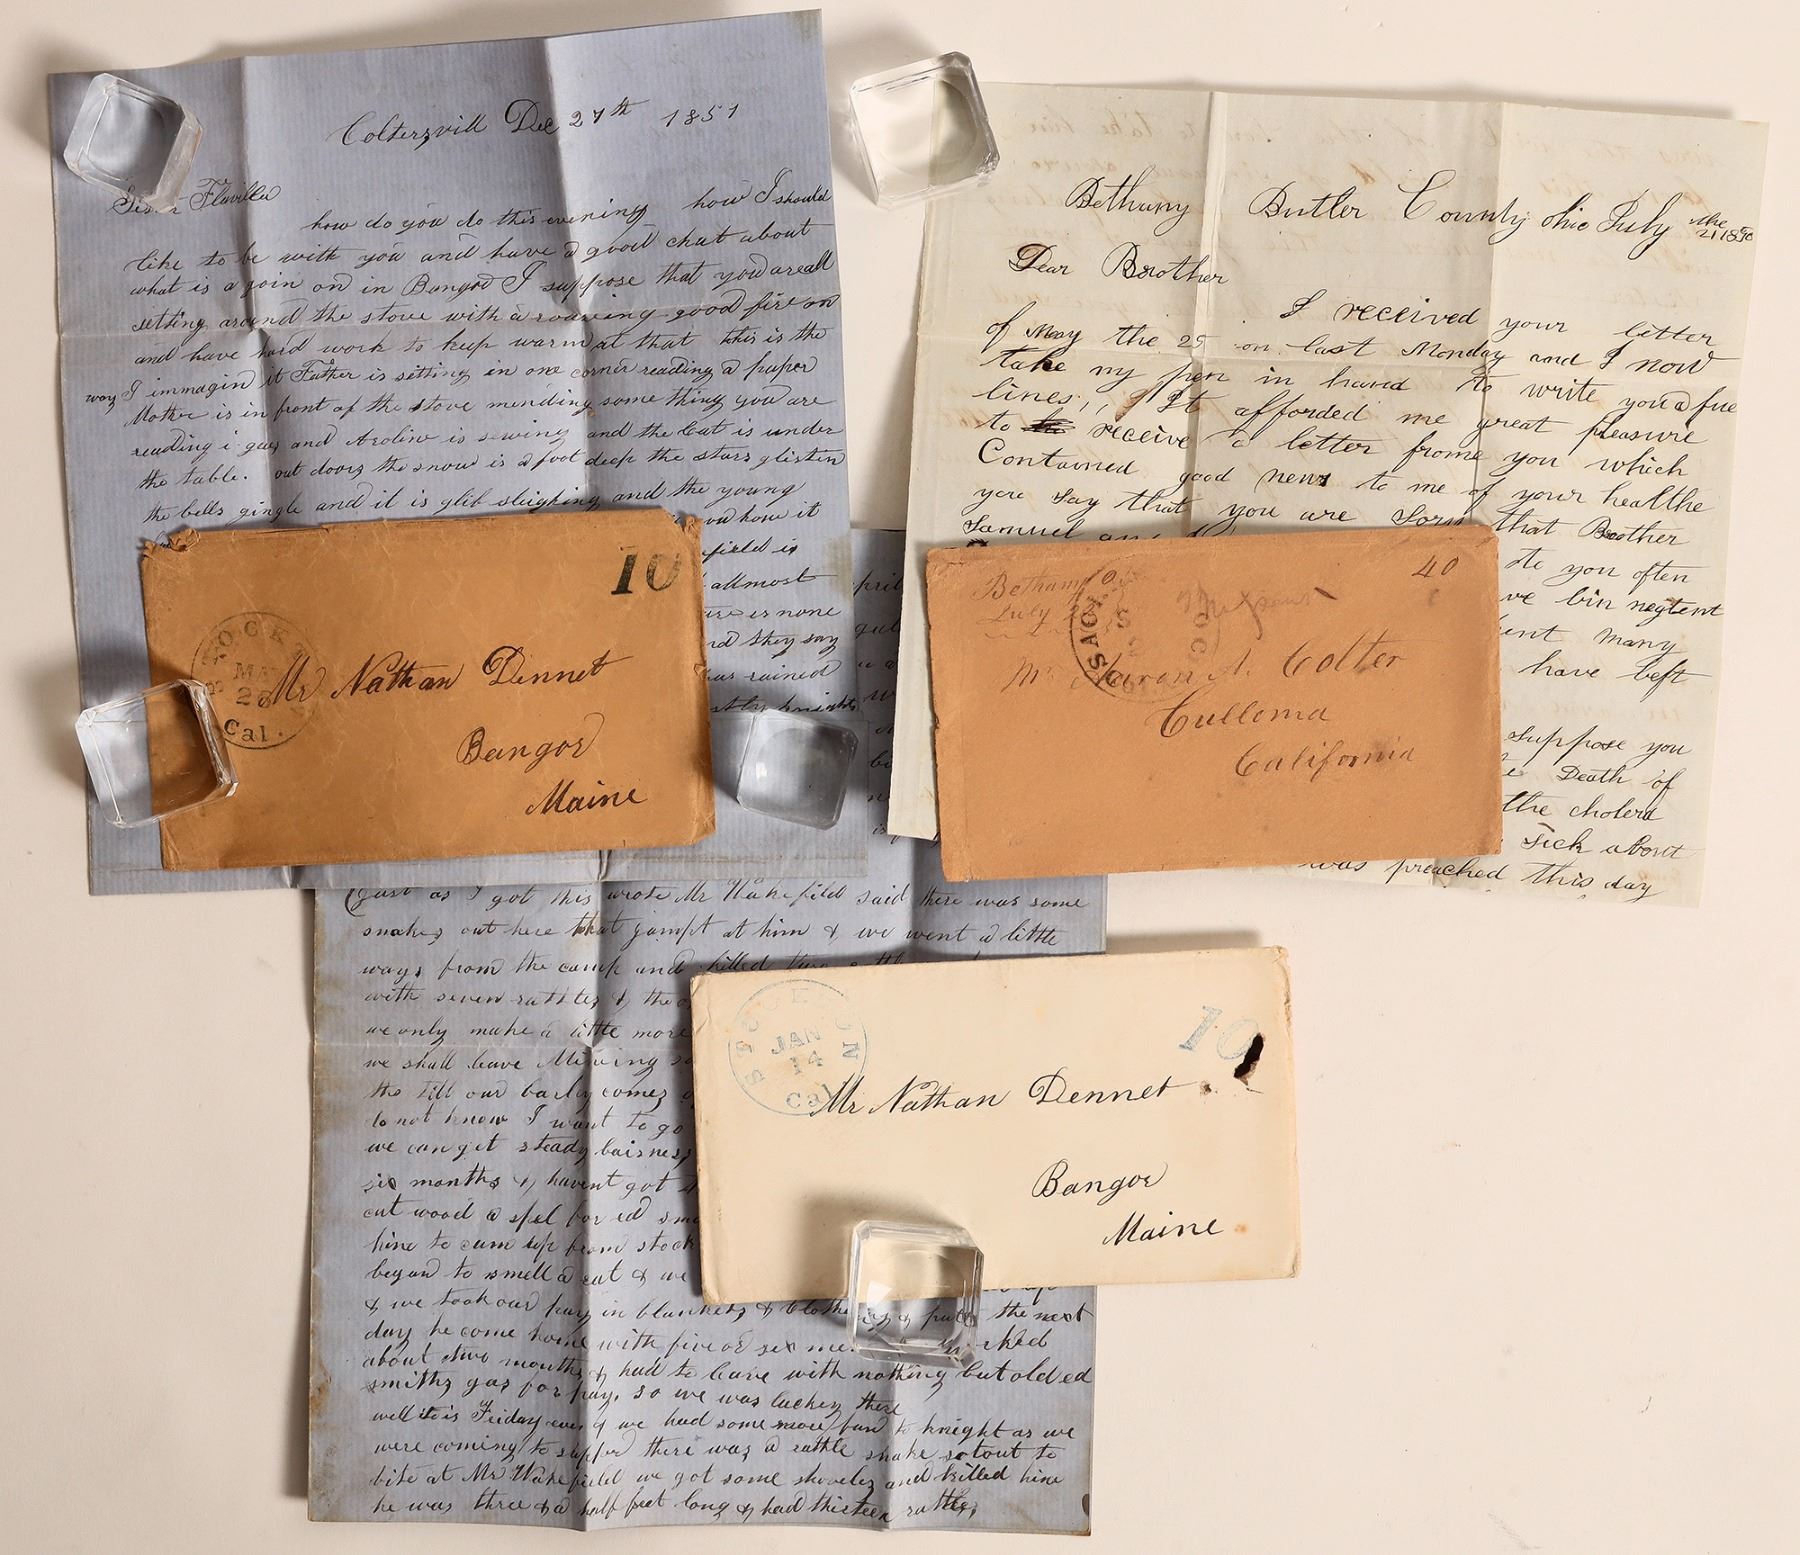 Coltersvill Dec 27th 1857
Sister Flavilla
how do you do this evening how I should
like to be with you and have a good chat about
what is a goin on in Bangor I suppose that you are all
setting around the stove with a roaring good fire on
and have hard work to keep warm at that this is the
way I immagin it Father is sitting in one corner reading a paper
Mother is in front of the stove mending some thing you are
reading i gess and is sewing and the Cat is under
the table. out doors the snow is a foot deep the stars glisten
the bells gingle and it is glib sleighing and the young
you know it
field is
allmost
is none
nd they say
has rained
knights
STOCKTON
MAY
28
Cal.
10
Mr Nathan Dennet
Bangor
Maine
Bethany Butler County ohio July the 21 1850
Dear Brother
I received your letter
of May the 25 on last Monday and I now
take my pen in hand to write you a fue
lines,, It afforded me great pleasure
to receive a letter frome you which
Contained good news to me of your healthe
you say that you are Sorry that Brother
Samuel and
to you often
ve bin negtent
ent many
have left
suppose you
Death of
the cholera
sick about
was preached this day
Bethany O
July
40
SAC
Mr Aaron A. Colter
Culloma
California
Just as I got this wrote Mr Wakefield said there was some
snakes out here that jumpt at him & we went a little
ways from the camp and killed two
with seven rattles & the
we only make a little more
we shall leave Mining
tho till our barley comes
do not know I want to go
we can get steady baisness
six months & havent got
cut wood a spel for
hine to cum up from stock
began to smell a rat & we
& we took our pay in blankets & clotheing & puts the next
day he come home with five or six men
about two months & had to leave with nothing but old ed
smiths gas for pay. so we was luckey there
well it is Friday eve & we had some more fun to knight as we
were coming to supper there was a rattle snake sot out to
bite at Mr Wakefield we got some shovels and killed hine
he was three & a half feet long & had thirteen rattles,
STOCKTON
JAN
14
Cal.
10
Mr Nathan Dennet
Bangor
Maine